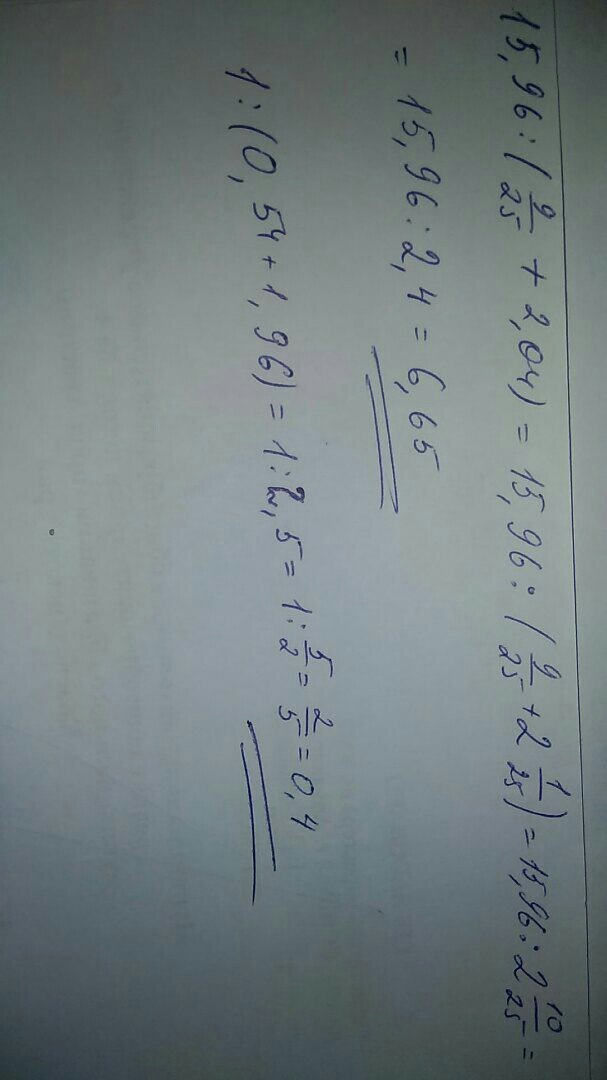 15,96 : (9/25 + 2,04) = 15,96 : (9/25 + 2 1/25) = 15,96 : 2 10/25 =
= 15,96 : 2,4 = 6,65
1 : (0,54 + 1,96) = 1 : 2,5 = 1 : 5/2 = 2/5 = 0,4